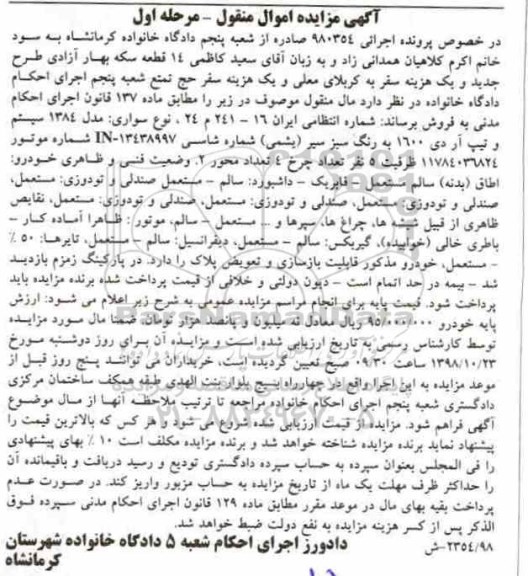 آگهی مزایده اموال منقول - مرحله اول
در خصوص پرونده اجرائی ۹۸۰۳۵۴ صادره از شعبه پنجم دادگاه خانواده کرمانشاه به سود
خانم اکرم کلاهیان همدانی زاد و به زیان آقای سعید کاظمی ۱۴ قطعه سکه بهار آزادی طرح
جدید و یک هزینه سفر به کربلای معلی و یک هزینه سفر حج تمتع شعبه پنجم اجرای احکام
دادگاه خانواده در نظر دارد مال منقول موصوف در زیر را مطابق ماده ۱۳۷ قانون اجرای احکام
مدنی به فروش برساند: شماره انتظامی ایران ۱۶ - ۲۴۱ م ۲۴ ، نوع سواری: مدل ۱۳۸۴ سیستم
و تیپ آر دی ۱۶۰۰ به رنگ سبز سیر (یشمی) شماره شاسی IN-۱۳۴۳۸۹۹۷ شماره موتور
۱۱۷۸۴۰۳۶۸۲۴ ظرفیت ۵ نفر تعداد چرخ ۴ تعداد محور ۲. وضعیت فنی و ظاهری خودرو:
اطاق (بدنه) سالم مستعمل - فابریک - داشبورد: سالم - مستعمل صندلی و تودوزی: مستعمل،
صندلی و تودوزی: مستعمل، صندلی و تودوزی: مستعمل، صندلی و تودوزی: مستعمل، نقایص
ظاهری از قبیل شیشه ها، چراغ ها، سپرها و .. مستعمل - سالم، موتور : ظاهرا آماده کار -
باطری خالی (خوابیده)، گیربکس: سالم - مستعمل، دیفرانسیل: سالم - مستعمل، تایرها: ۵۰ ٪
- مستعمل، خودرو مذکور قابلیت بازسازی و تعویض پلاک را دارد. در پارکینگ زمزم بازدید
شد - بیمه در حد اتمام است - دیون دولتی و خلافی از قیمت پرداخت شده برنده مزایده باید
پرداخت شود. قیمت پایه برای انجام مراسم مزایده عمومی به شرح زیر اعلام می شود: ارزش
پایه خودرو ۹۵/۰۰۰/۰۰۰ ریال معادل نه میلیون و پانصد هزار تومان. ضمنا مال مورد مزایده
توسط کارشناس رسمی به تاریخ ارزیابی شده است و مزایده آن برای روز دوشنبه مورخ
۱۳۹۸/۱۰/۲۳ ساعت ۰۹/۳۰ صبح تعیین گردیده است، خریداران می توانند پنج روز قبل از
موعد مزایده به این اجرا واقع در چهارراه بسیج بلوار بنت الهدی طبقه همکف ساختمان مرکزی
دادگستری شعبه پنجم اجرای احکام خانواده مراجعه تا ترتیب ملاحظه آنها از مال موضوع
آگهی فراهم شود. مزایده از قیمت ارزیابی شده شروع می شود و هر کس که بالاترین قیمت را
پیشنهاد نماید برنده مزایده شناخته خواهد شد و برنده مزایده مکلف است ۱۰ ٪ بهای پیشنهادی
را فی المجلس بعنوان سپرده به حساب سپرده دادگستری تودیع و رسید دریافت و باقیمانده آن
را حداکثر ظرف مهلت یک ماه از تاریخ مزایده به حساب مزبور واریز کند. در صورت عدم
پرداخت بقیه بهای مال در موعد مقرر مطابق ماده ۱۲۹ قانون اجرای احکام مدنی سپرده فوق
الذکر پس از کسر هزینه مزایده به نفع دولت ضبط خواهد شد.
دادورز اجرای احکام شعبه ۵ دادگاه خانواده شهرستان
کرمانشاه
۲۳۵۴/۹۸-ش